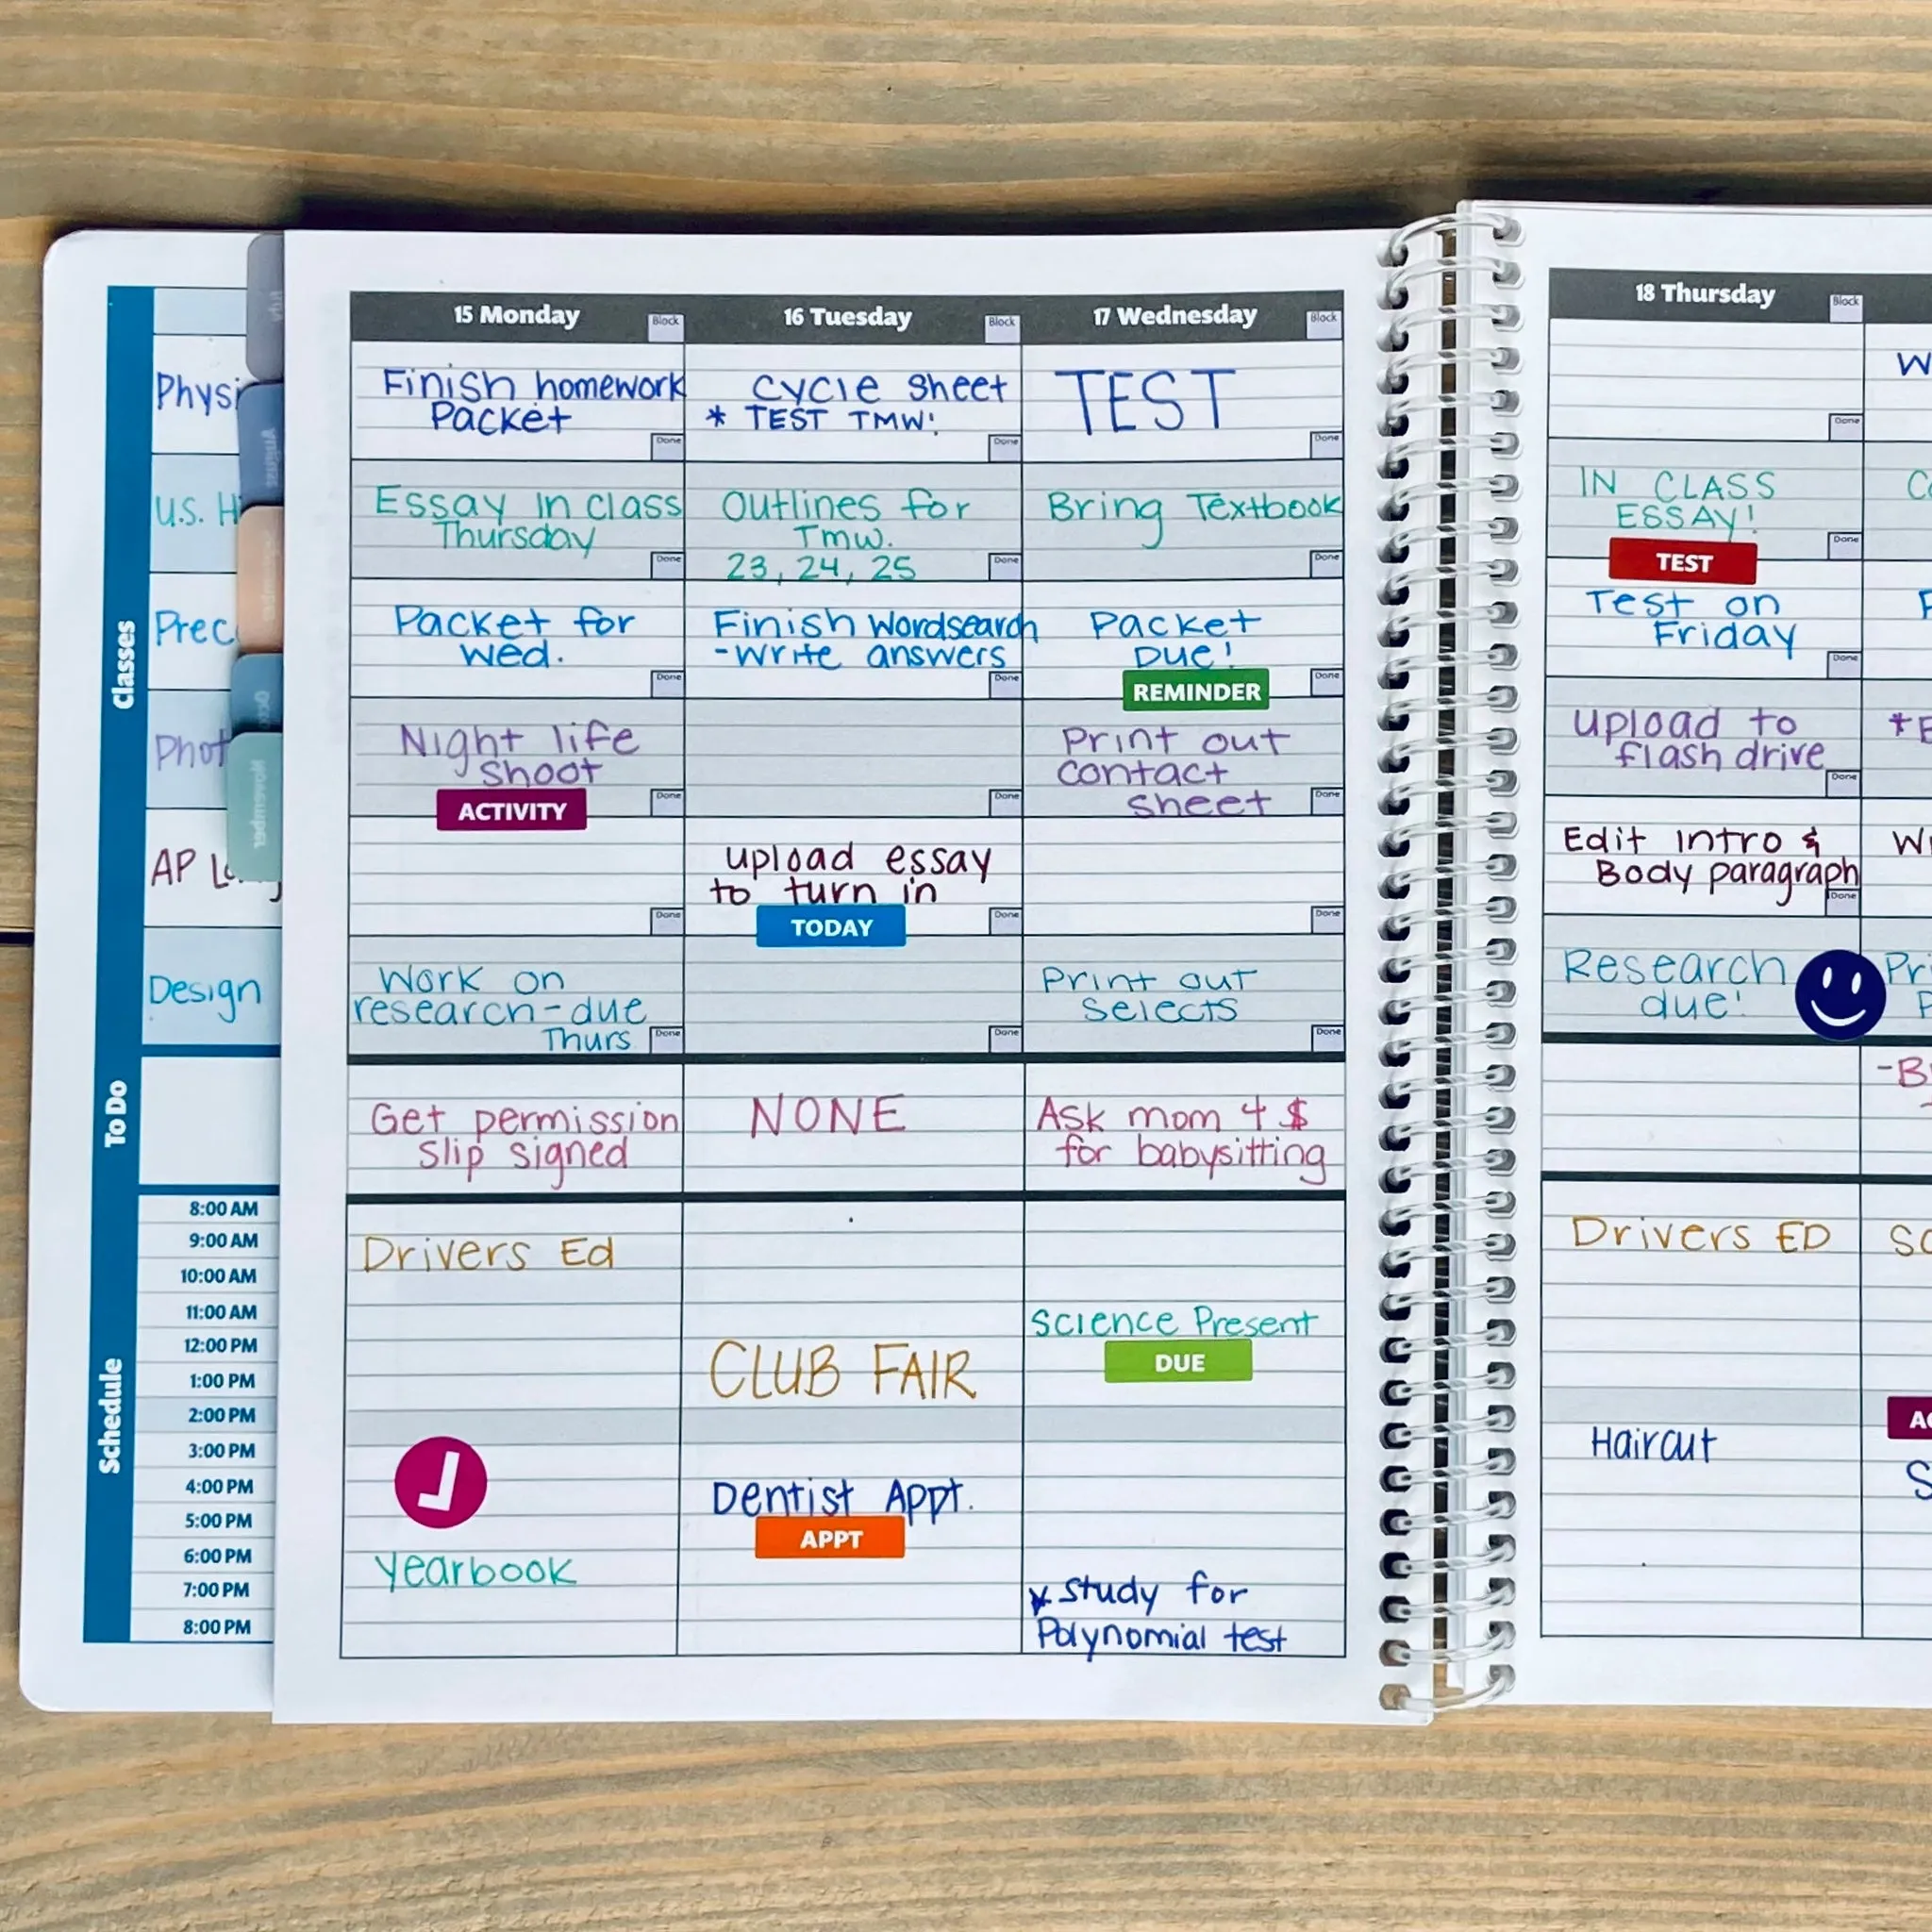 15 Monday
Block
16 Tuesday
Block
17 Wednesday
Block
18 Thursday
Block
Classes
Finish homework
Packet
Done
Cycle sheet
* TEST TMW!
Done
TEST
Done
Done
U.S. H
Essay in class
Thursday
Done
Outlines for
Tmw.
23, 24, 25
Done
Bring Textbook
Done
IN CLASS
ESSAY!
Done
TEST
Prec
Packet for
wed.
Done
Finish wordsearch
-write answers
Done
Packet
Due!
Done
REMINDER
Test on
Friday
Done
Phot
Night life
shoot
Done
ACTIVITY
Done
Print out
contact
sheet
Done
upload to
flash drive
Done
AP
Done
upload essay
to turn in
Done
TODAY
Done
Edit Intro &
Body paragraph
Done
Design
Work on
research-due
Thurs
Done
Done
Print out
selects
Done
Research
due!
To Do
Get permission
slip signed
NONE
Ask mom 4 $
for babysitting
Schedule
8:00 AM
9:00 AM
10:00 AM
11:00 AM
12:00 PM
1:00 PM
2:00 PM
3:00 PM
4:00 PM
5:00 PM
6:00 PM
7:00 PM
8:00 PM
Drivers Ed
Yearbook
CLUB FAIR
Dentist Appt.
APPT
Science Present
DUE
* Study for
Polynomial test
Drivers ED
Haircut
November